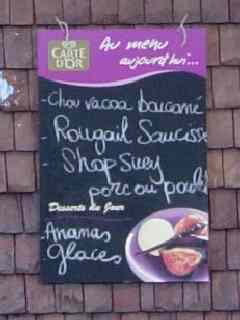 CARTE
D'OR
Au menu
aujourd'hui...
- Chou vacoa boucané
Rougail Saucisse
- Shop Suey
porc ou poulet
Desserts du Jour
- Ananas
- glaces